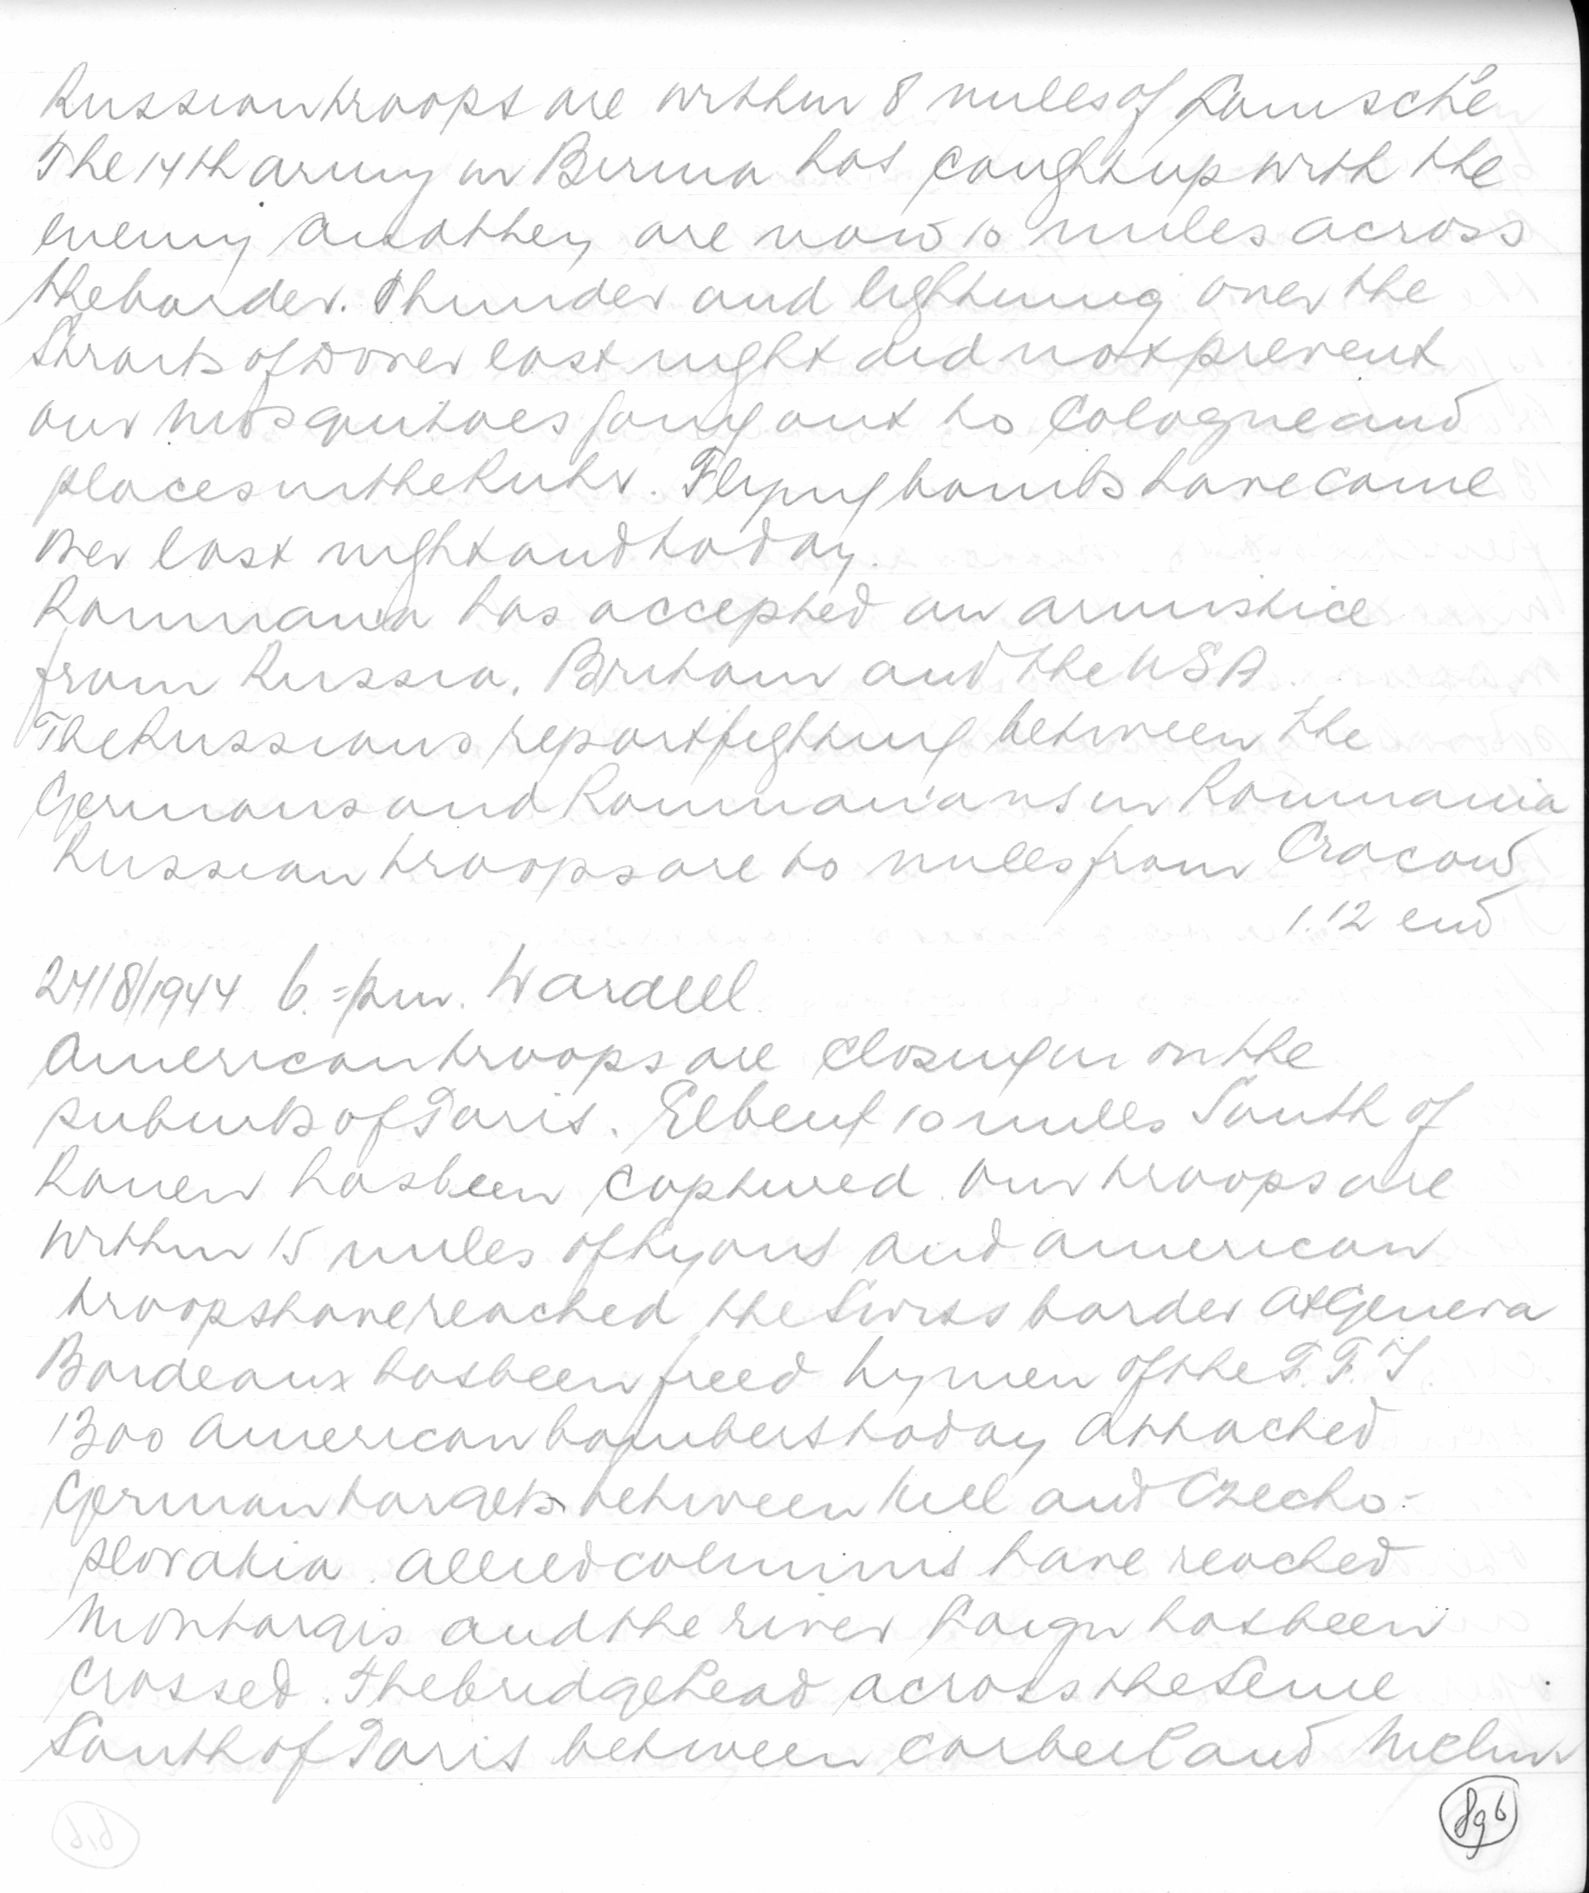 Russian troops are within 8 miles of Lomsche
The 14th army in Birma has caught up with the
enemy and they are now 10 miles across
the border. Thunder and lightning over the
Straits of Dover last night did not prevent
our Mosquitoes going out to Cologne and
places in the Ruhr. Flying bombs have come
over last night and today.
Roumania has accepted an armistice
from Russia, Britain and the USA.
The Russians report fighting between the
Germans and Roumanians in Roumania
Russian troops are 40 miles from Cracow
1.12 end
24/8/1944 6.= p.m. Wardell
American troops are closing in on the
suburbs of Paris. Elbeuf 10 miles South of
Rouen has been captured. Our troops are
within 15 miles of Lyons and American
troops have reached the Swiss border at Geneva
Bordeaux has been freed by men of the F.F.I.
1300 American bombers today attacked
German targets between Kiel and Czecho-
slovakia. Allied columns have reached
Montargis and the river Loign has been
crossed. The bridgehead across the Seine
South of Paris between Corbeil and Melun
896